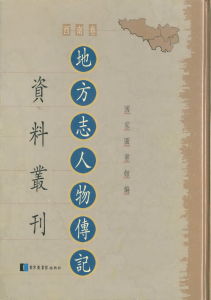 西南卷
地方志人物傳記
資料叢刊
國家圖書館編